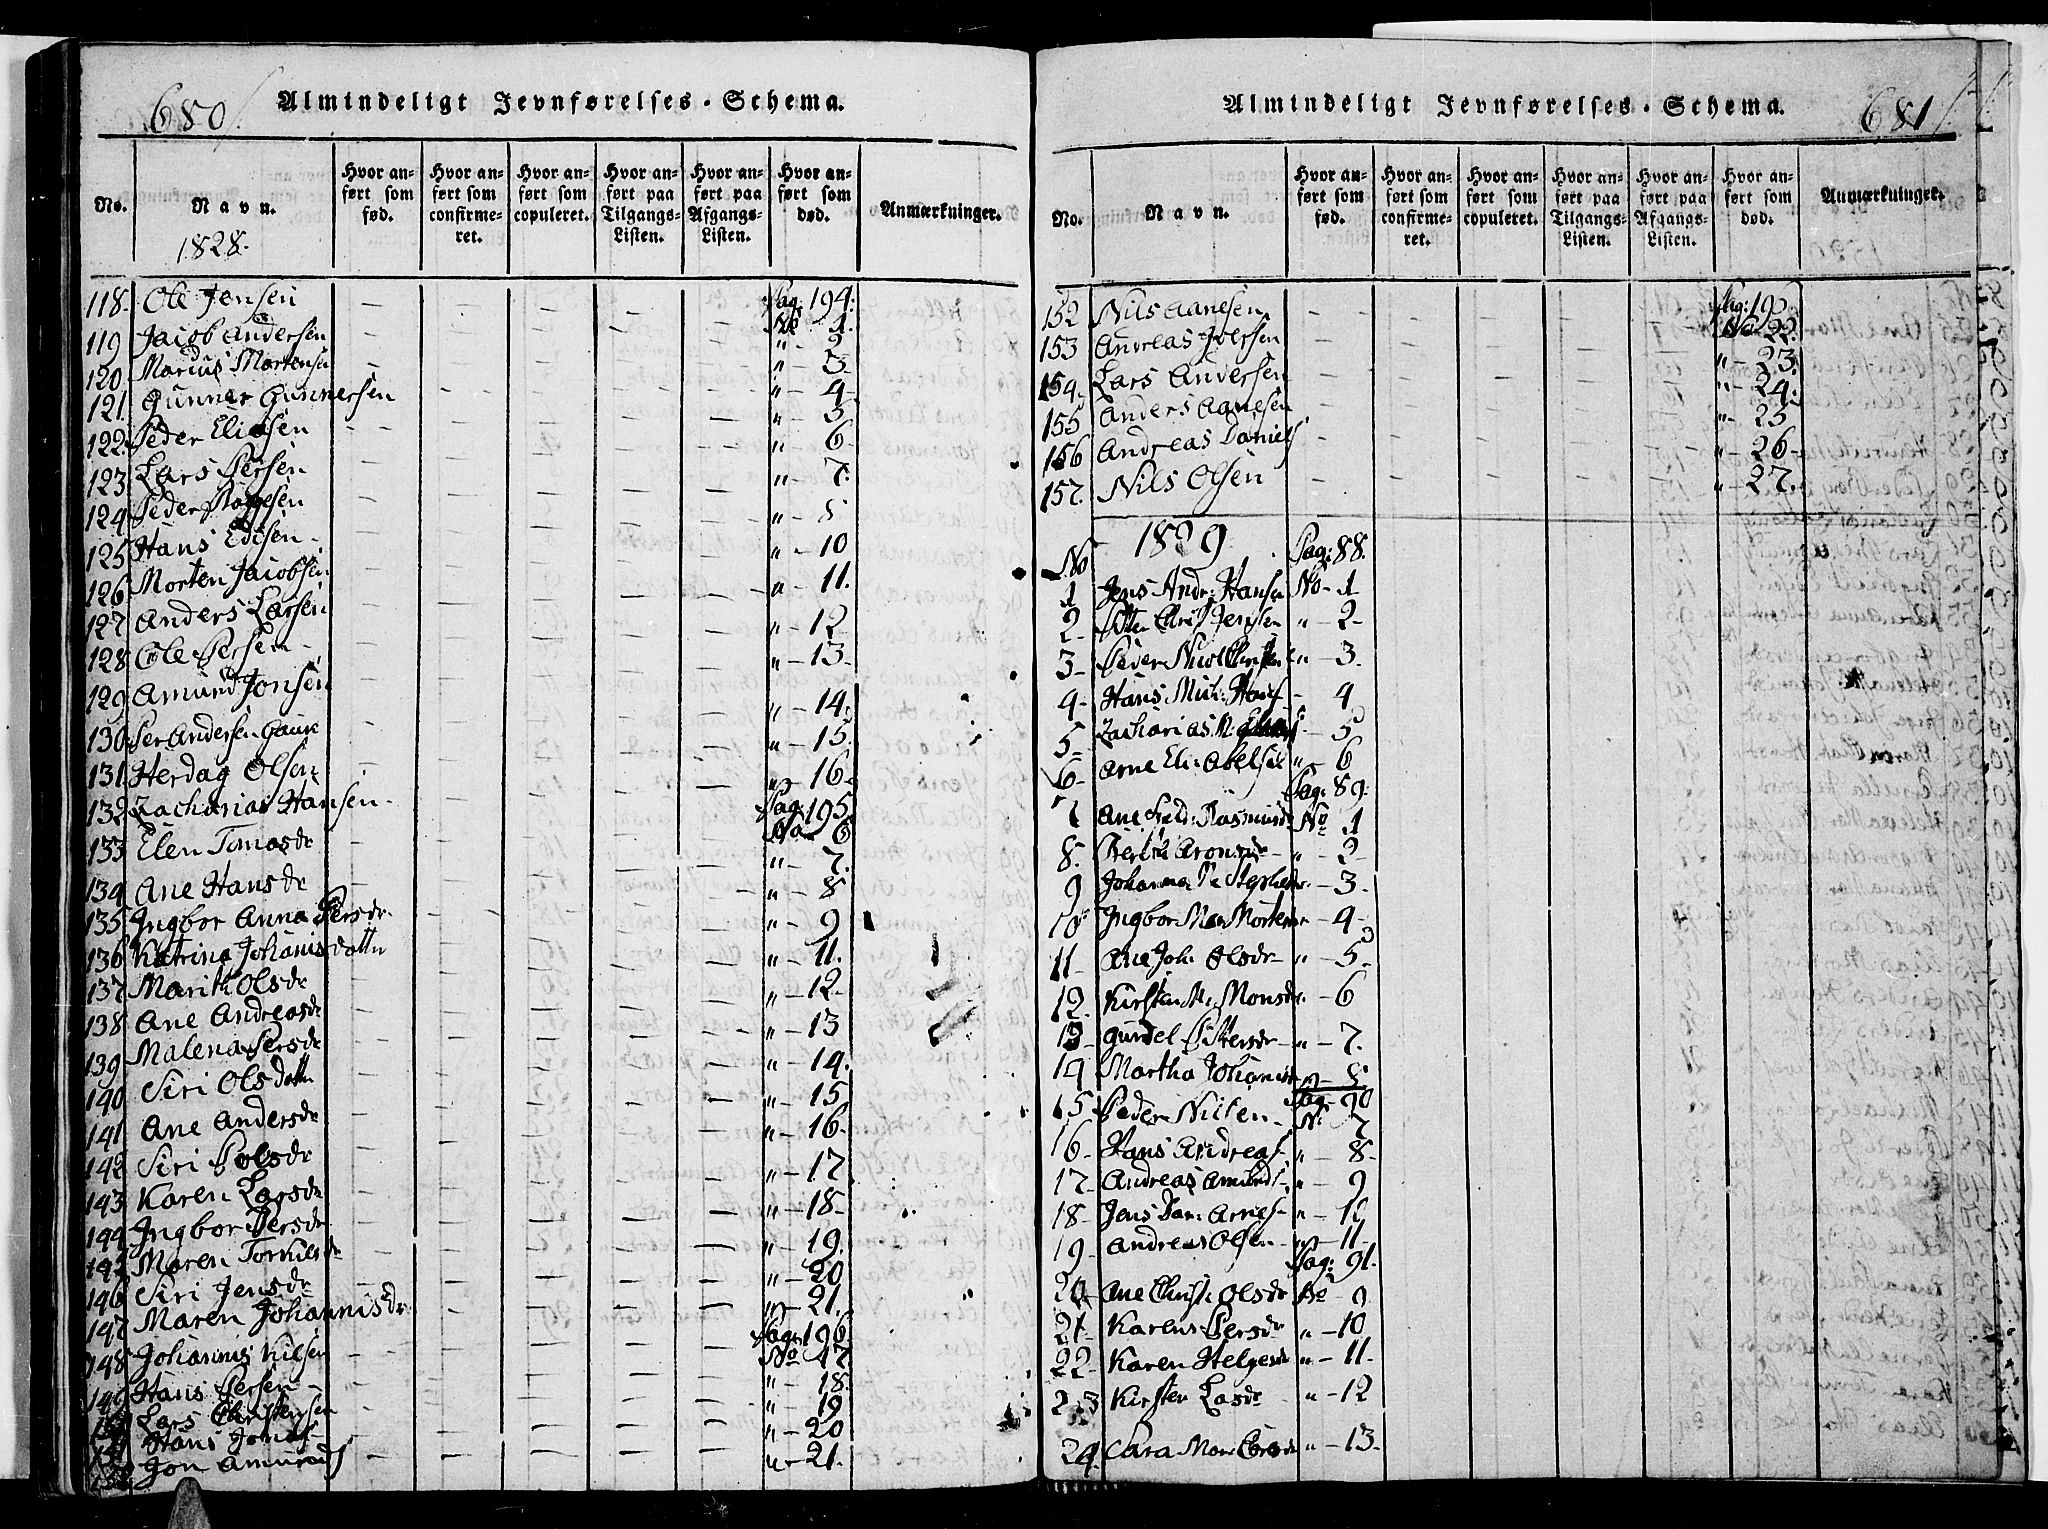 680/. Almindeligt Jevnførelses-Schema.
No. Navn. Hvor anført som fød. Hvor anført som confirmeret. Hvor anført som copuleret. Hvor anført paa Tilgangs-Listen. Hvor anført paa Afgangs-Listen. Hvor anført som død. Anmærkninger.
1828.
118. Ole Jensen — — — — — Pag: 194.
No 1.
119 Jacob Andersen — — — — — " — 2
120 Marius Mortensen — — — — — " — 3.
121. Gunner Gunnersen — — — — " — 4
122. Peder Eliasen — — — — — " — 5
123. Lars Persen — — — — — " — 6
124 Peder — — — — — " — 7.
125 Hans Edisen — — — — — " — 8
126 Morten Jacobsen — — — — — " — 10
127 Anders Larsen — — — — — " — 11.
128 Ole Persen — — — — — " — 12
129 Amund Jonsen — — — — — " — 13.
130 Per Andersen Gaure — — — — — " — 14.
131 Herdag Olsen — — — — — " — 15.
132 Zacharias Hansen — — — — — " — 16.
Pag: 195
133 Elen Tomasdr — — — — — No 6
134 Ane Hansdr — — — — — " — 7.
" — 8
135 Ingbor Anna Persdr. — — — — " — 9
136 Katrina Johanisdattr — — — — " — 11.
137 Marith Olsdr — — — — — " — 12
138 Ane Andreasdr — — — — — " — 13
139 Malena Persdr — — — — — " — 14.
140 Siri Olsdattr — — — — — " — 15
141 Ane Andersdr — — — — — " — 16.
142 Siri Polsdr — — — — — " — 17
143 Karen Larsdr — — — — — " — 18.
144 Ingbor Persdr — — — — — " — 19.
145 Maren Torkilsdr — — — — — " — 20
146 Siri Jensdr — — — — — " — 21.
147 Maren Johannisdr — — — — Pag: 196
148 Johannis Nilsen — — — — — No 17
149 Hans Persen — — — — — " — 18.
Lars Christensen — — — — — " — 19
Hans Jonas — — — — — " — 20
Jon Amunds — — — — — " — 21.
Almindeligt Jevnførelses-Schema. 681/.
No. Navn. Hvor anført som fød. Hvor anført som confirmeret. Hvor anført som copuleret. Hvor anført paa Tilgangs-Listen. Hvor anført paa Afgangs-Listen. Hvor anført som død. Anmærkninger.
Pag: 196
152 Nils Aanesen — — — — — No 22.
153 Andreas Joersen — — — — — " — 23.
154. Lars Andersen — — — — — " — 24.
155 Anders Aanesen — — — — — " — 25
156 Andreas Daniels — — — — — " — 26
157. Nils Olsen — — — — — " — 27.
No 1829 Pag: 88.
1 Jens Andr: Hansen No — 1
2 Christ Jensen " — 2
3 Peder Nicol Christens " — 3.
4 Hans Mich: Hans — 4
5 Zacharias M. — 5
6 Arne Eli: Abelsen " — 6
Pag: 89.
7 Ane Rasmusdr No 1
8. Berith Aronsdr " — 2
9 Johanna — 3.
10 Ingbor Mar Mortens — 4
11 Ane Joh: Olsdr " — 5
12 Kirsten M. Monsdr. — 6
13 Gundel Pettersdr " — 7.
14 Martha Johanisdr " — 8
Pag — 90
15 Peder Nilsen No 7
16 Hans Andreas " — 8
17. Andreas Amunds " — 9
18 Jens Dan: Arnes " — 10
19 Andreas Olsen " — 11
Pag: 91.
20 Ane Christi: Olsdr No 9
21 Karen Persdr " — 10
22 Karen Helgesdr " — 11.
23 Kirsten Lasdr " — 12
24. Sara Mar: Persdr " — 13